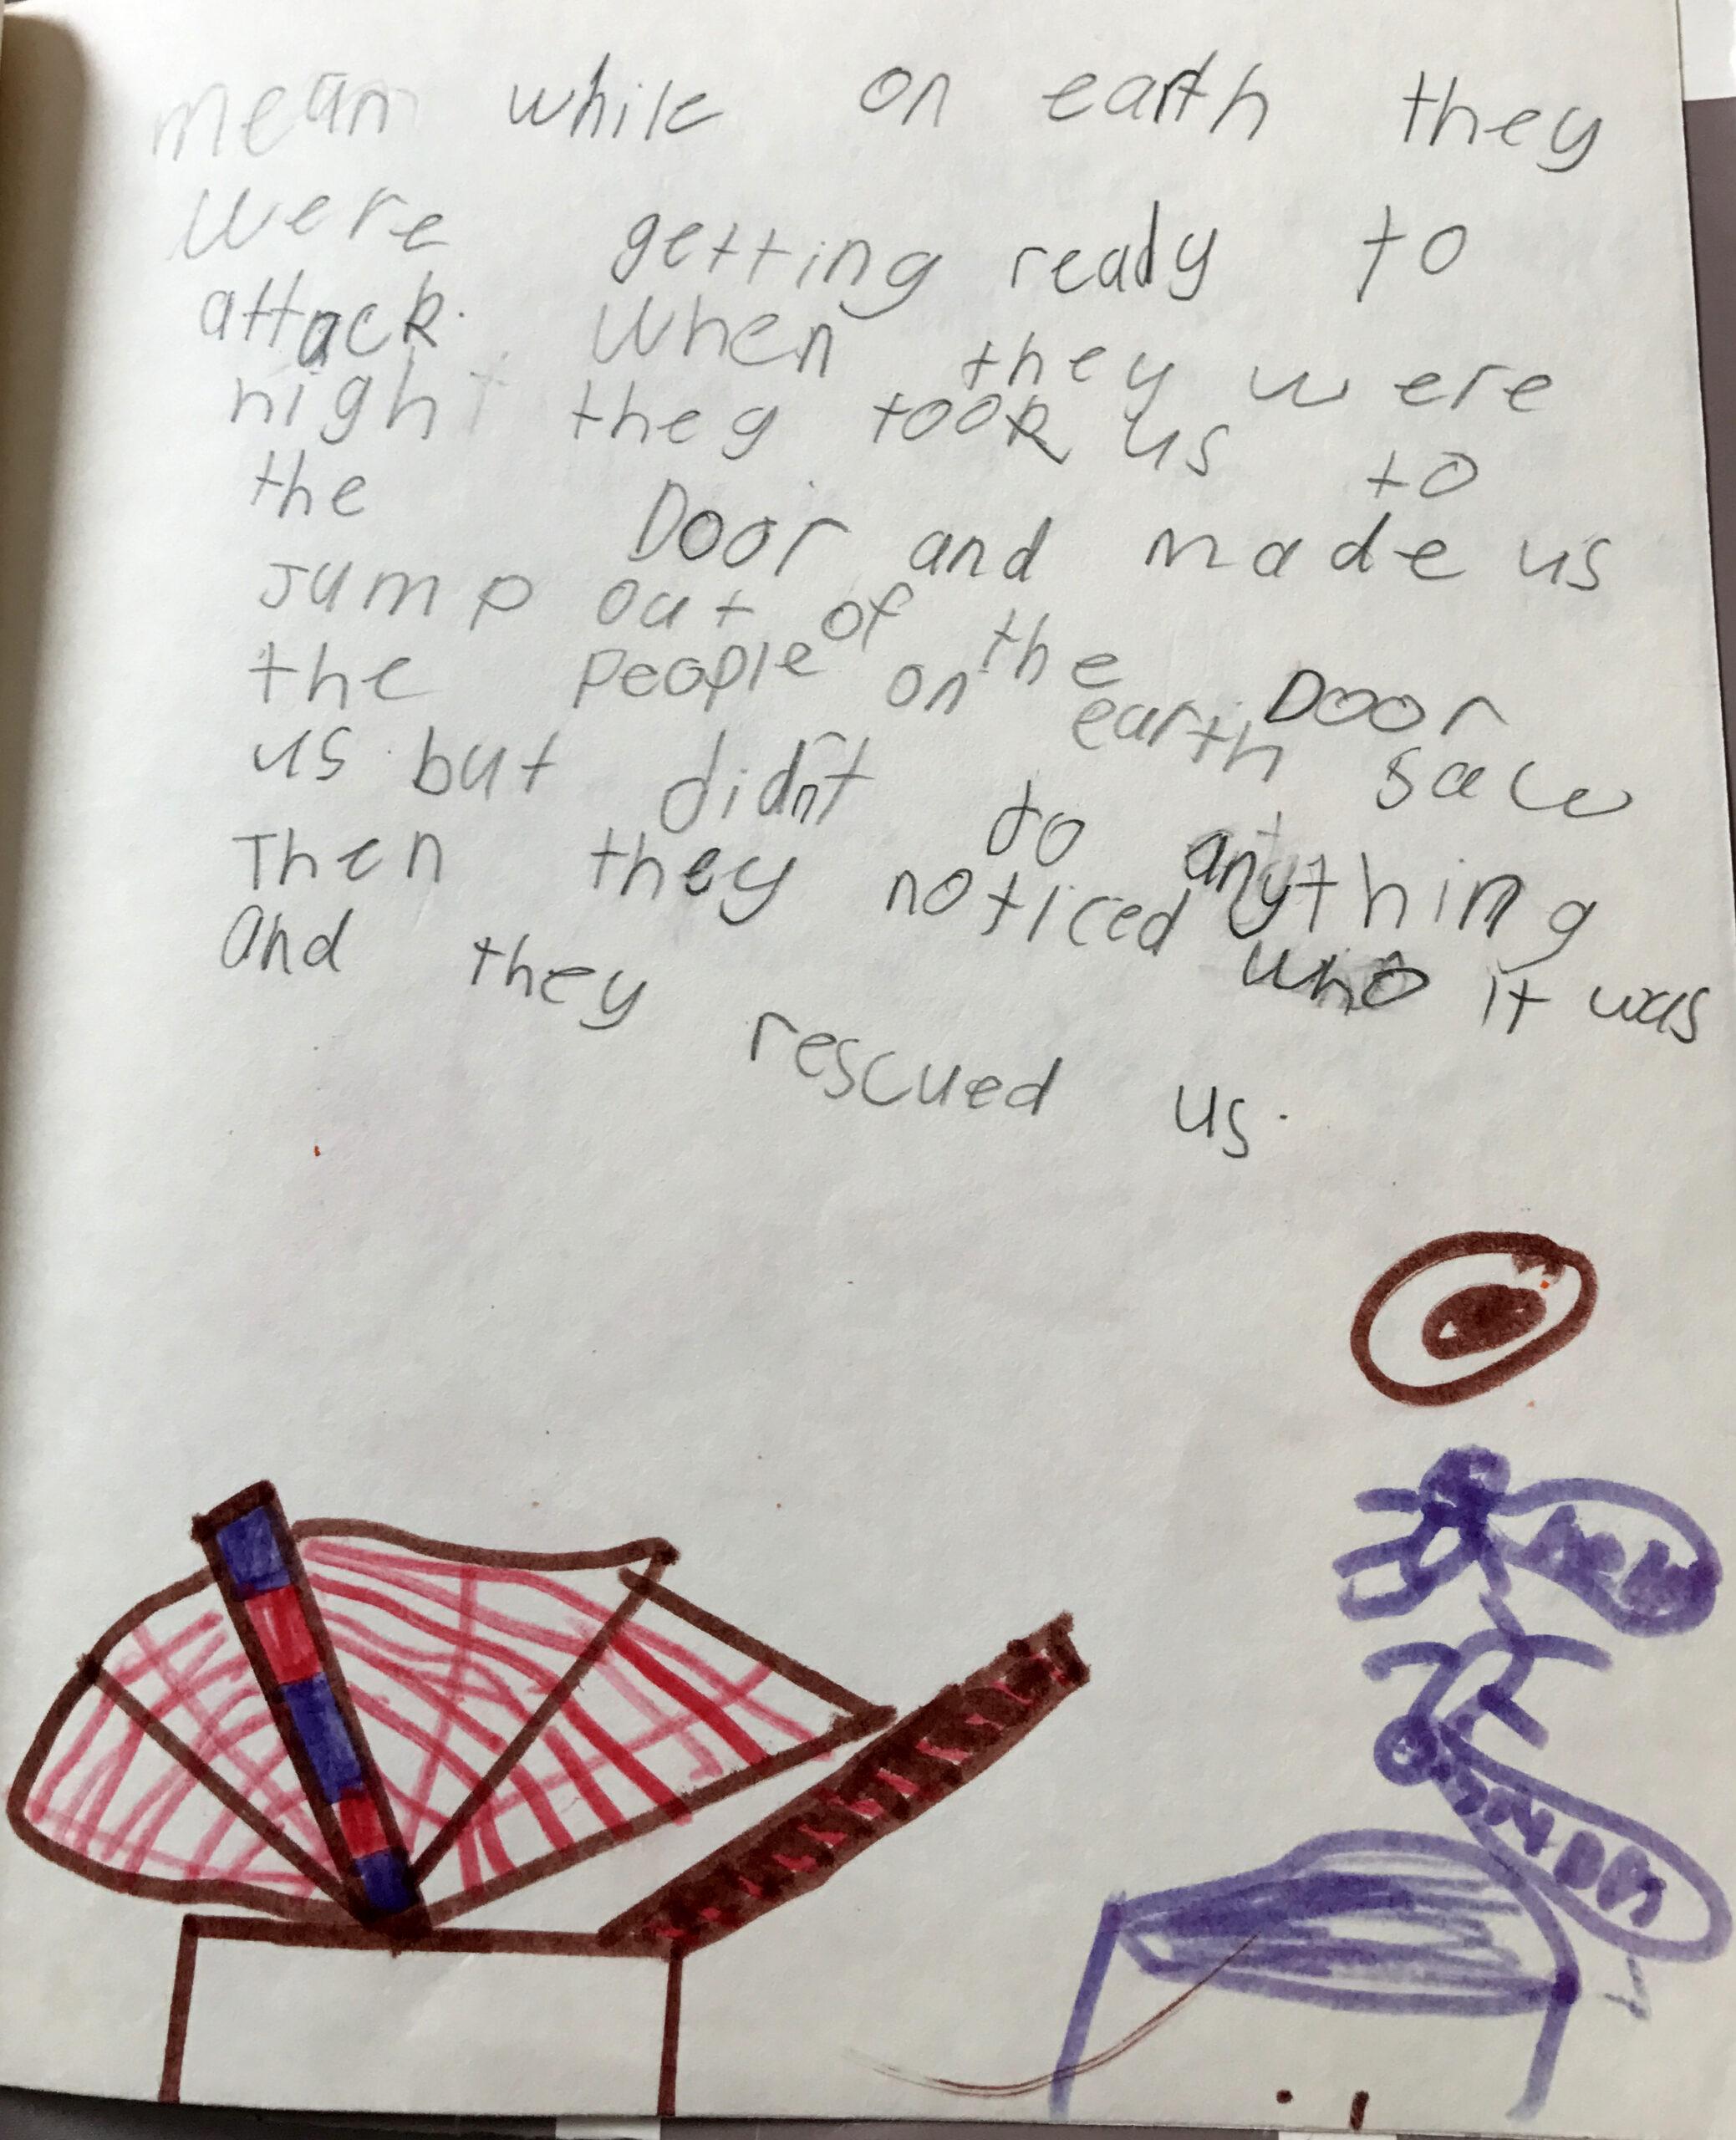 mean while on earth they
were getting ready to
attack. When they were
night they took us to
the Door and made us
Jump out of the Door
the people on earth saw
us but didn't do anything
Then they noticed who it was
and they rescued us.